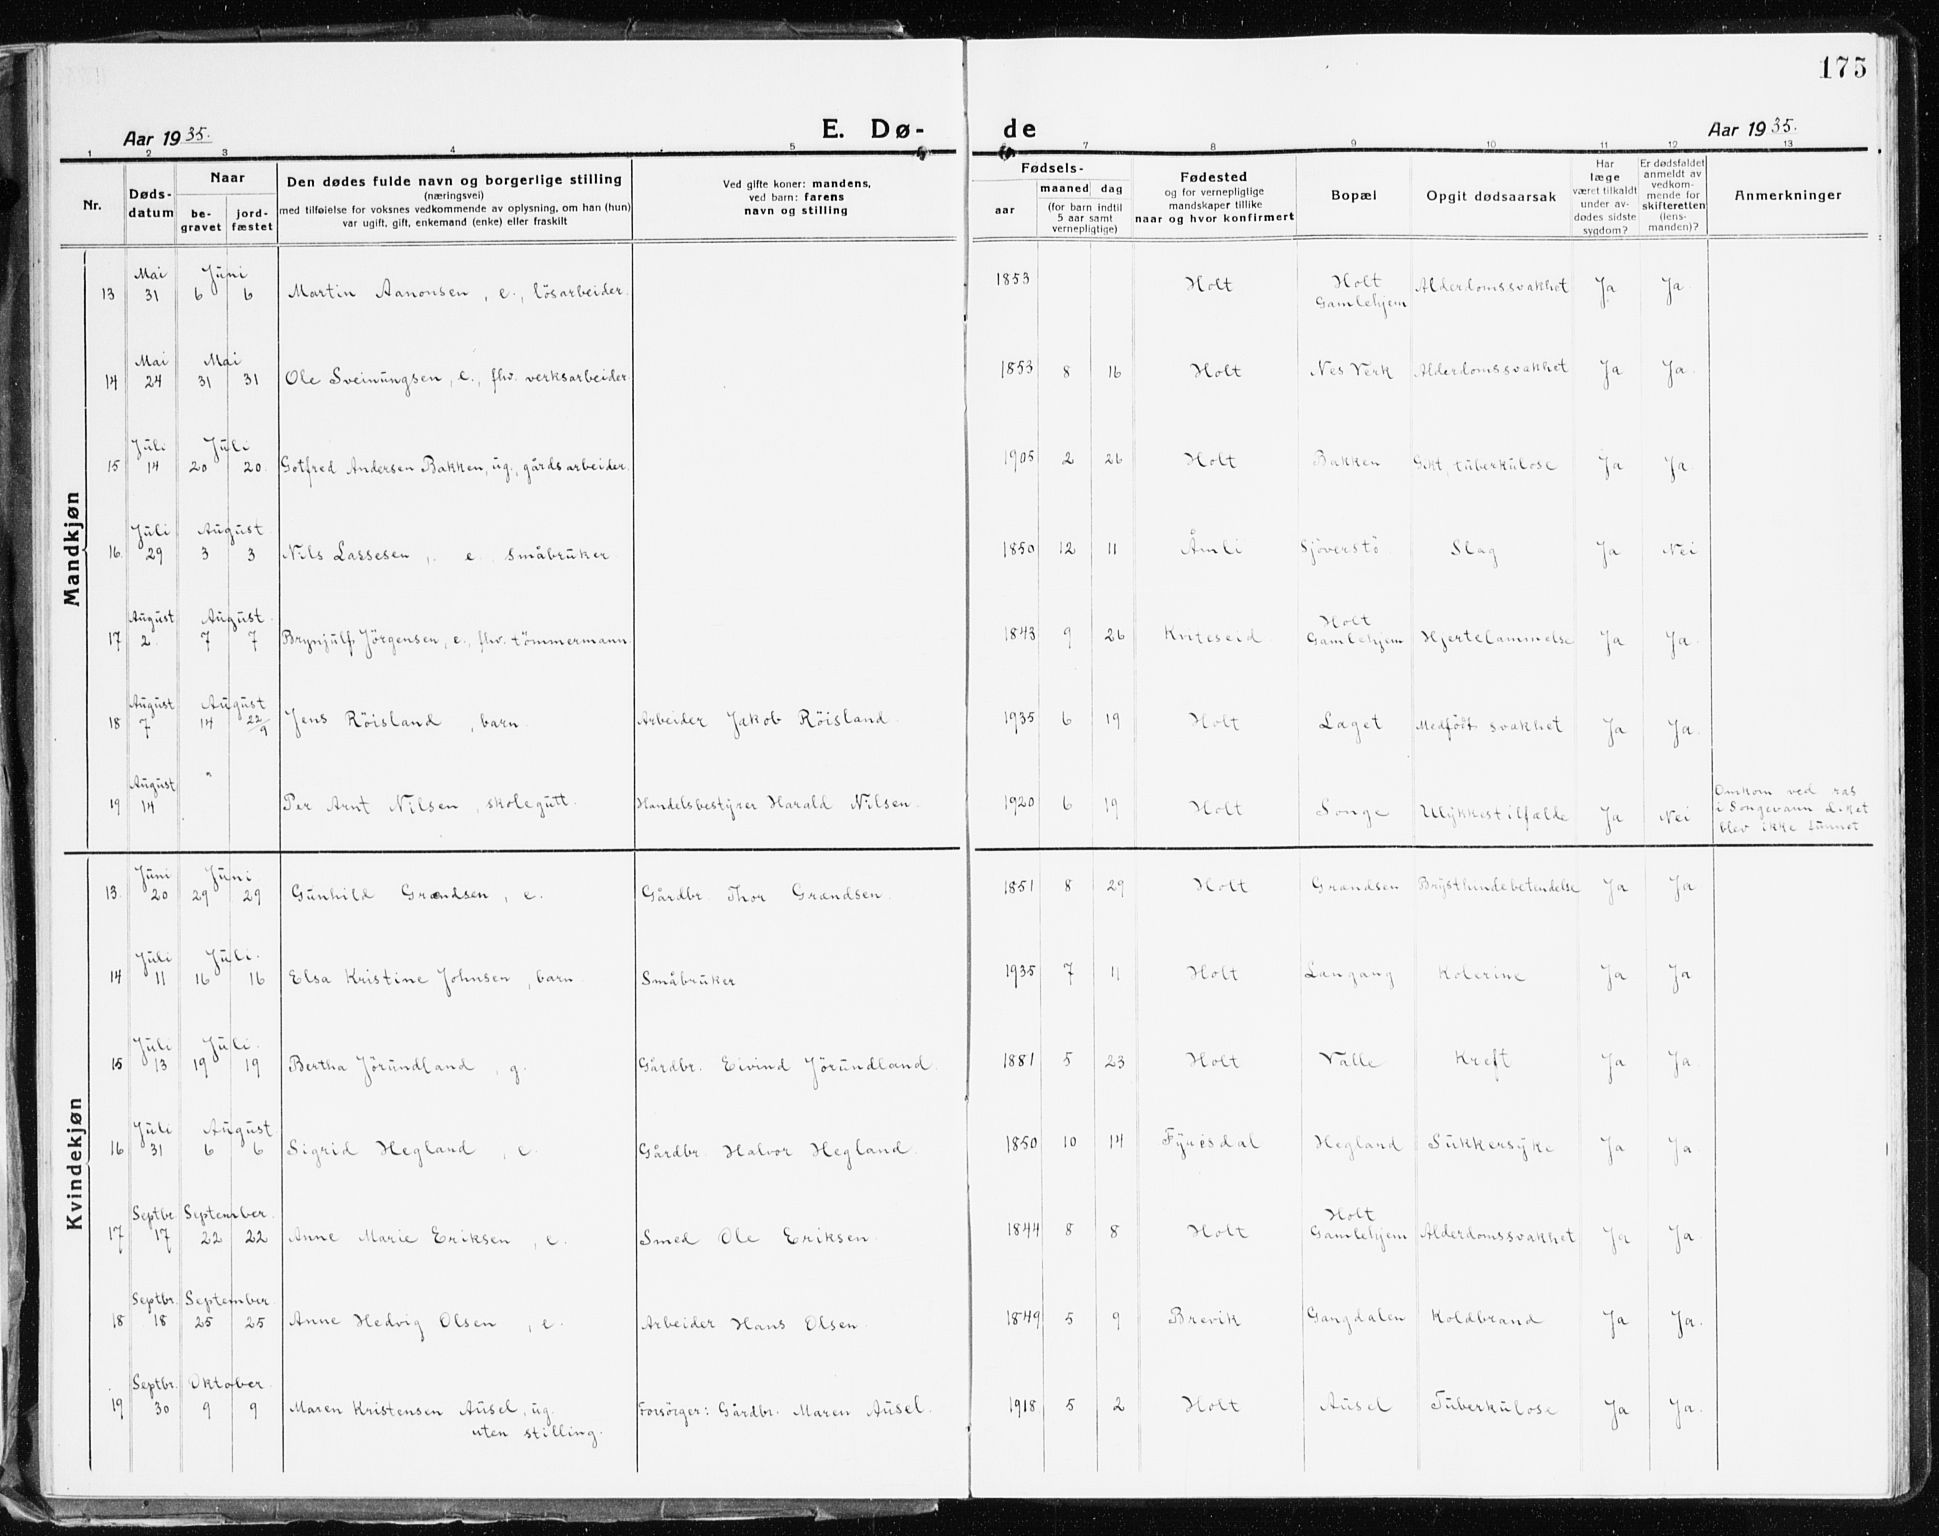 175
Aar 1935.
E. Dø-
de
Aar 1935.
1 2 3 4 5 7 8 9 10 11 12 13
Nr.
Døds-
datum
Naar
be-
gravet
jord-
fæstet
Den dødes fulde navn og borgerlige stilling
(næringsvei)
med tilføielse for voksnes vedkommende av oplysning, om han (hun)
var ugift, gift, enkemand (enke) eller fraskilt
Ved gifte koner: mandens,
ved barn: farens
navn og stilling
Fødsels-
aar
maaned dag
(for barn indtil
5 aar samt
vernepligtige)
Fødested
og for vernepligtige
mandskaper tillike
naar og hvor konfirmert
Bopæl
Opgit dødsaarsak
Har
læge
været tilkaldt
under av-
dødes sidste
sygdom?
Er dødsfaldet
anmeldt av
vedkom-
mende for
skifteretten
(lens-
manden)?
Anmerkninger
Mandkjøn
Mai Juni Holt
13 31 6 6 Martin Aanonsen, e., lösarbeider. 1853 Holt Gamlehjem Alderdomssvakhet Ja Ja.
Mai Mai
14 24 31 31 Ole Sveinungsen, e., fhv. verksarbeider. 1853 8 16 Holt Nes Verk Alderdomssvakhet Ja Ja.
Juli Juli
15 14 20 20. Gotfred Andersen Bakken, ug., gårdsarbeider. 1905 2 26 Holt Bakken Gikt, tuberkulose Ja Ja.
Juli August
16. 29 3 3 Nils Lassesen, e. småbruker. 1850 12 11 Åmli Sjöverstö Slag Ja Nei
August August. Holt
17 2. 7 7 Brynjulf Jörgensen, e., fhv. tömmermann. 1843 9 26 Kviteseid. Gamlehjem Hjertelammelse Ja Ja.
August August
18 7 14 22/9 Jens Röisland, barn. Arbeider Jakob Röisland. 1935 6 19 Holt Laget Medfödt svakhet Ja Ja.
August "
19 14 Per Arnt Nilsen, skolegutt. Handelsbestyrer Harald Nilsen. 1920 6 19 Holt Songe Ulykkestilfælde Ja Nei Omkom ved ras
i Songevann Liket
blev ikke funnet
Kvindekjøn
Juni Juni.
13. 20 29 29 Gunhild Grændsen, e. Gårdbr. Thor Grændsen. 1851 8 29 Holt Grændsen Brysthindebetendelse Ja Ja
Juli Juli.
14 11 16 16 Elsa Kristine Johnsen, barn. Småbruker 1935 7 11 Holt Langang Kolerine Ja Ja
Juli Juli.
15 13 19 19 Bertha Jörundland, g. Gårdbr. Eivind Jörundland. 1881 5 23 Holt Valle Kreft Ja Ja.
Juli August.
16 31 6 6 Sigrid Hegland, e. Gårdbr. Halvor Hegland. 1850 10 14 Fyresdal Hegland Sukkersyke Ja Ja.
Septbr. September. Holt
17 17 22 22 Anne Marie Eriksen, e. Smed Ole Eriksen. 1844 8 8 Holt Gamlehjem Alderdomssvakhet Ja Ja.
Septbr. September.
18 18 25 25 Anne Hedvig Olsen, e. Arbeider Hans Olsen. 1849 5 9 Brevik Gangdalen Koldbrand Ja Ja.
Septbr. Oktober.
19 30 9 9 Maren Kristensen Ausel, ug. Forsörger: Gårdbr. Maren Ausel. 1918 5 2 Holt Ausel Tuberkulose Ja Ja.
uten stilling.